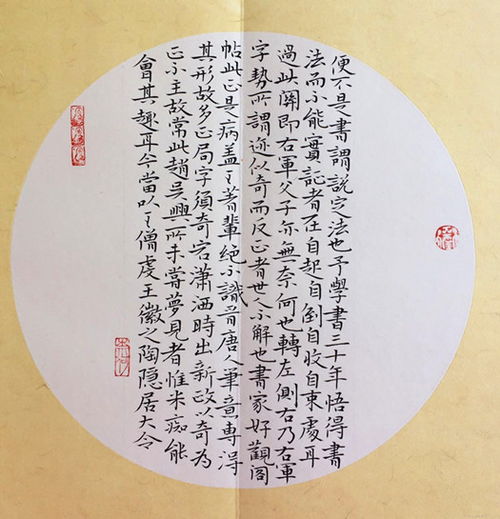 便不是書謂說定法也予學書三十年悟得書
法而不能實証者在自起自倒自收自束處耳
過此關即右軍父子亦無奈何也轉左側右乃右軍
字勢所謂迹似奇而反正者世人不解也書家好觀閣
帖此正是病盖王著輩絕不識晋唐人筆意專得
其形故多正局字須奇宕瀟洒時出新致以奇為
正不主故常此趙吳興所未嘗夢見者惟米痴能
會其趣耳今當以王僧虔王徽之陶隐居大令